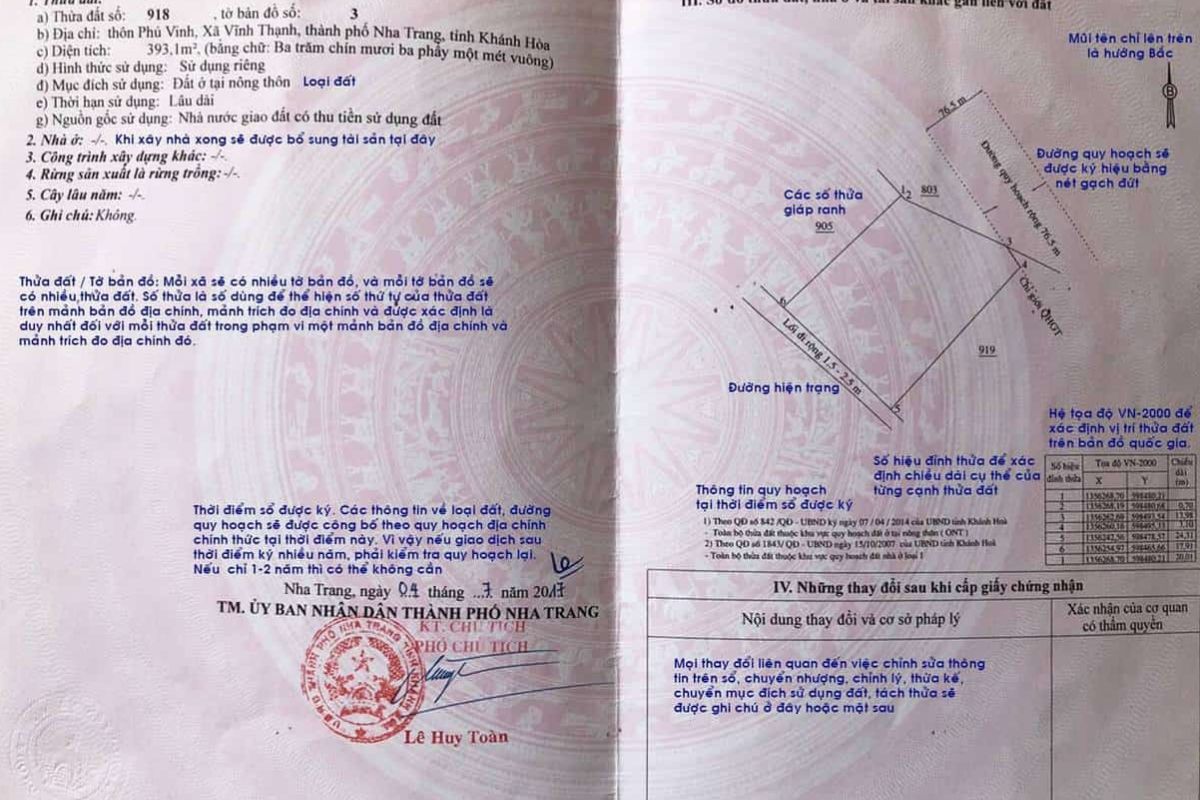 1. Thửa đất:
a) Thửa đất số: 918 , tờ bản đồ số: 3
b) Địa chỉ: thôn Phú Vinh, Xã Vĩnh Thạnh, thành phố Nha Trang, tỉnh Khánh Hòa
c) Diện tích: 393,1m², (bằng chữ: Ba trăm chín mươi ba phẩy một mét vuông)
d) Hình thức sử dụng: Sử dụng riêng
đ) Mục đích sử dụng: Đất ở tại nông thôn Loại đất
e) Thời hạn sử dụng: Lâu dài
g) Nguồn gốc sử dụng: Nhà nước giao đất có thu tiền sử dụng đất
2. Nhà ở: -/-. Khi xây nhà xong sẽ được bổ sung tài sản tại đây
3. Công trình xây dựng khác: -/-.
4. Rừng sản xuất là rừng trồng: -/-.
5. Cây lâu năm: -/-.
6. Ghi chú: Không.
Thửa đất / Tờ bản đồ: Mỗi xã sẽ có nhiều tờ bản đồ, và mỗi tờ bản đồ sẽ
có nhiều thửa đất. Số thửa là số dùng để thể hiện số thứ tự của thửa đất
trên mảnh bản đồ địa chính, mảnh trích đo địa chính và được xác định là
duy nhất đối với mỗi thửa đất trong phạm vi một mảnh bản đồ địa chính và
mảnh trích đo địa chính đó.
Thời điểm sổ được ký. Các thông tin về loại đất, đường
quy hoạch sẽ được công bố theo quy hoạch địa chính
chính thức tại thời điểm này. Vì vậy nếu giao dịch sau
thời điểm ký nhiều năm, phải kiểm tra quy hoạch lại.
Nếu chỉ 1-2 năm thì có thể không cần
Nha Trang, ngày 04 tháng ...7 năm 2017
TM. ỦY BAN NHÂN DÂN THÀNH PHỐ NHA TRANG
KT. CHỦ TỊCH
PHÓ CHỦ TỊCH
Lê Huy Toàn
III. Sơ đồ thửa đất, nhà ở và tài sản khác gắn liền với đất
Mũi tên chỉ lên trên
là hướng Bắc
B
76.5 m
Đường quy hoạch rộng 76.5 m
Đường quy hoạch sẽ
được ký hiệu bằng
nét gạch đứt
Các số thửa
giáp ranh
905
803
1
2
3
4
5
6
Chỉ giới QHGT
919
Lối đi rộng 1.5 - 2.5 m
Đường hiện trạng
Hệ tọa độ VN-2000 để
xác định vị trí thửa đất
trên bản đồ quốc gia.
Số hiệu đỉnh thửa để xác
định chiều dài cụ thể của
từng cạnh thửa đất
Số hiệu đỉnh thửa
Tọa độ VN-2000
Chiều dài (m)
X Y
1 1356268.70 598480.21
2 1356268.19 598480.68 0.70
6 1356254.97 598465.66 17.91
1 1356268.70 598480.21
Thông tin quy hoạch
tại thời điểm sổ được ký
1) Theo QĐ số 842 /QĐ - UBND ký ngày 07 / 04 / 2014 của UBND tỉnh Khánh Hoà
- Toàn bộ thửa đất thuộc khu vực quy hoạch đất ở tại nông thôn ( ONT )
2) Theo QĐ số 1843/ QĐ - UBND ngày 15/10/2007 của UBND tỉnh Khánh Hoà
- Toàn bộ thửa đất thuộc khu vực quy hoạch đất nhà ở loại 1
IV. Những thay đổi sau khi cấp giấy chứng nhận
Nội dung thay đổi và cơ sở pháp lý
Xác nhận của cơ quan
có thẩm quyền
Mọi thay đổi liên quan đến việc chỉnh sửa thông
tin trên sổ, chuyển nhượng, chỉnh lý, thừa kế,
chuyển mục đích sử dụng đất, tách thửa sẽ
được ghi chú ở đây hoặc mặt sau